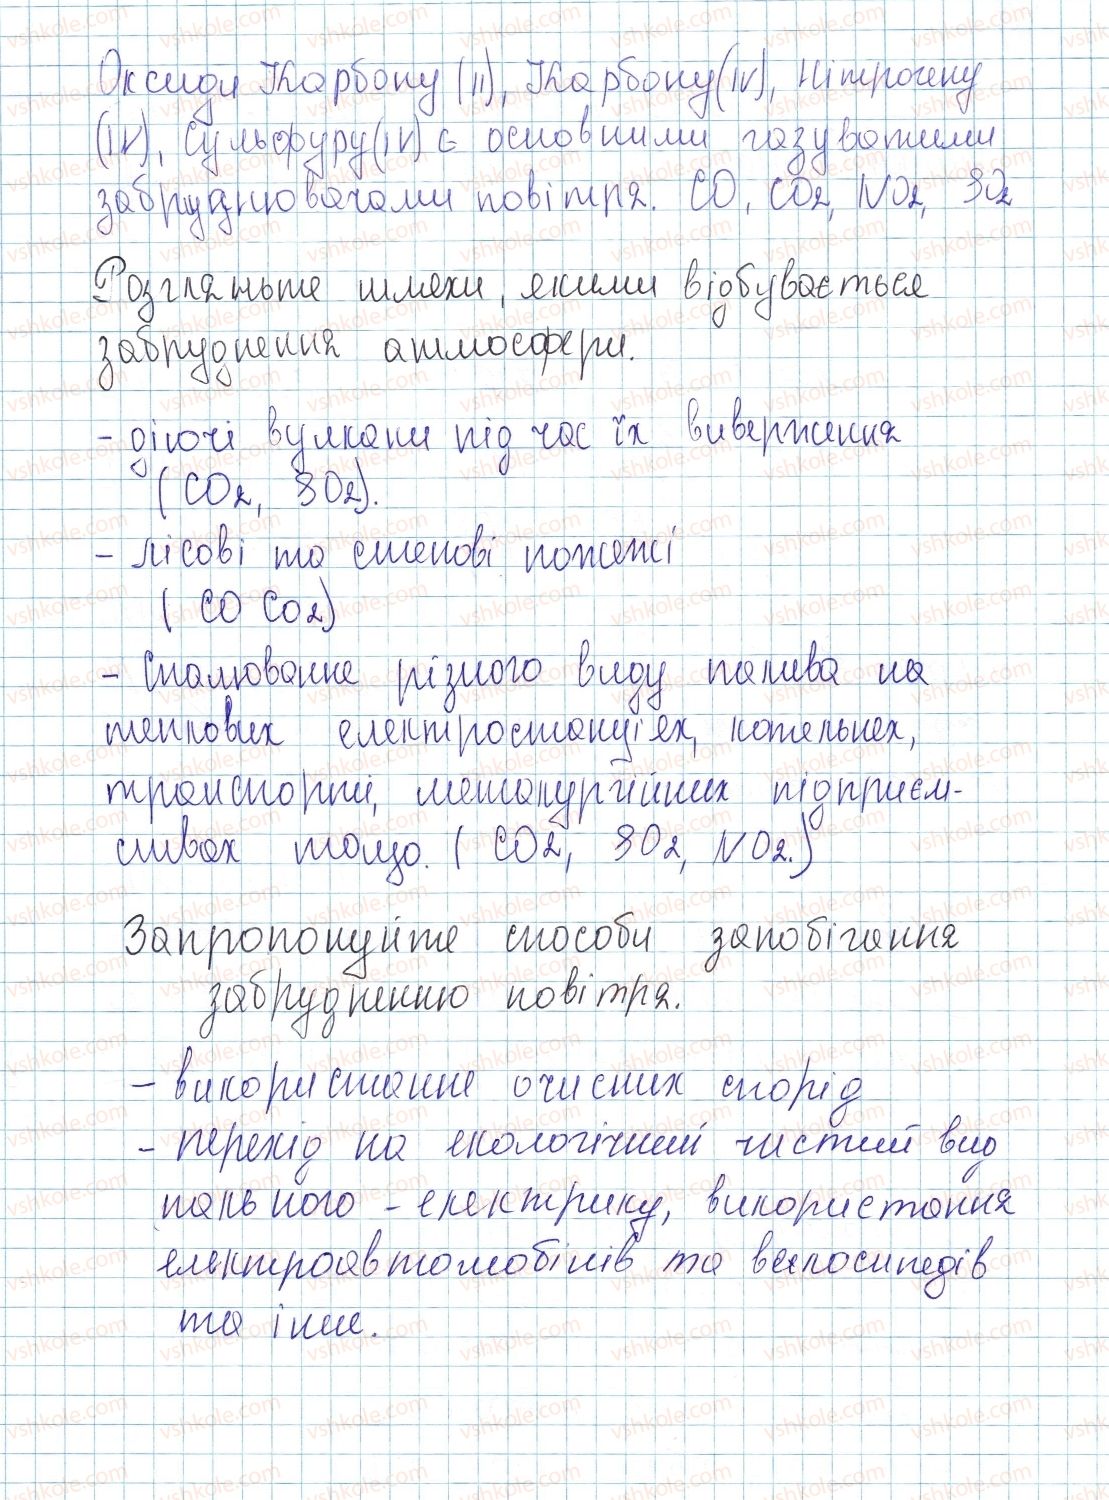 Оксиди Карбону (II), Карбону(IV), Нітрогену
(IV), Сульфуру(IV) є основними газуватими
забруднювачами повітря. CO, CO2, NO2, SO2
Розгляньте шляхи, якими відбувається
забруднення атмосфери.
- діючі вулкани під час їх виверження
(CO2, SO2).
- лісові та степові пожежі
( CO CO2)
- Спалювання різного виду палива на
теплових електростанціях, котельнях,
транспорті, металургійних підприєм-
ствах тощо. ( CO2, SO2, NO2.)
Запропонуйте способи запобігання
забрудненню повітря.
- використання очисних спорід
- перехід на екологічний чистий вид
пального - електрику, використання
електроавтомобілів та велосипедів
та інше.